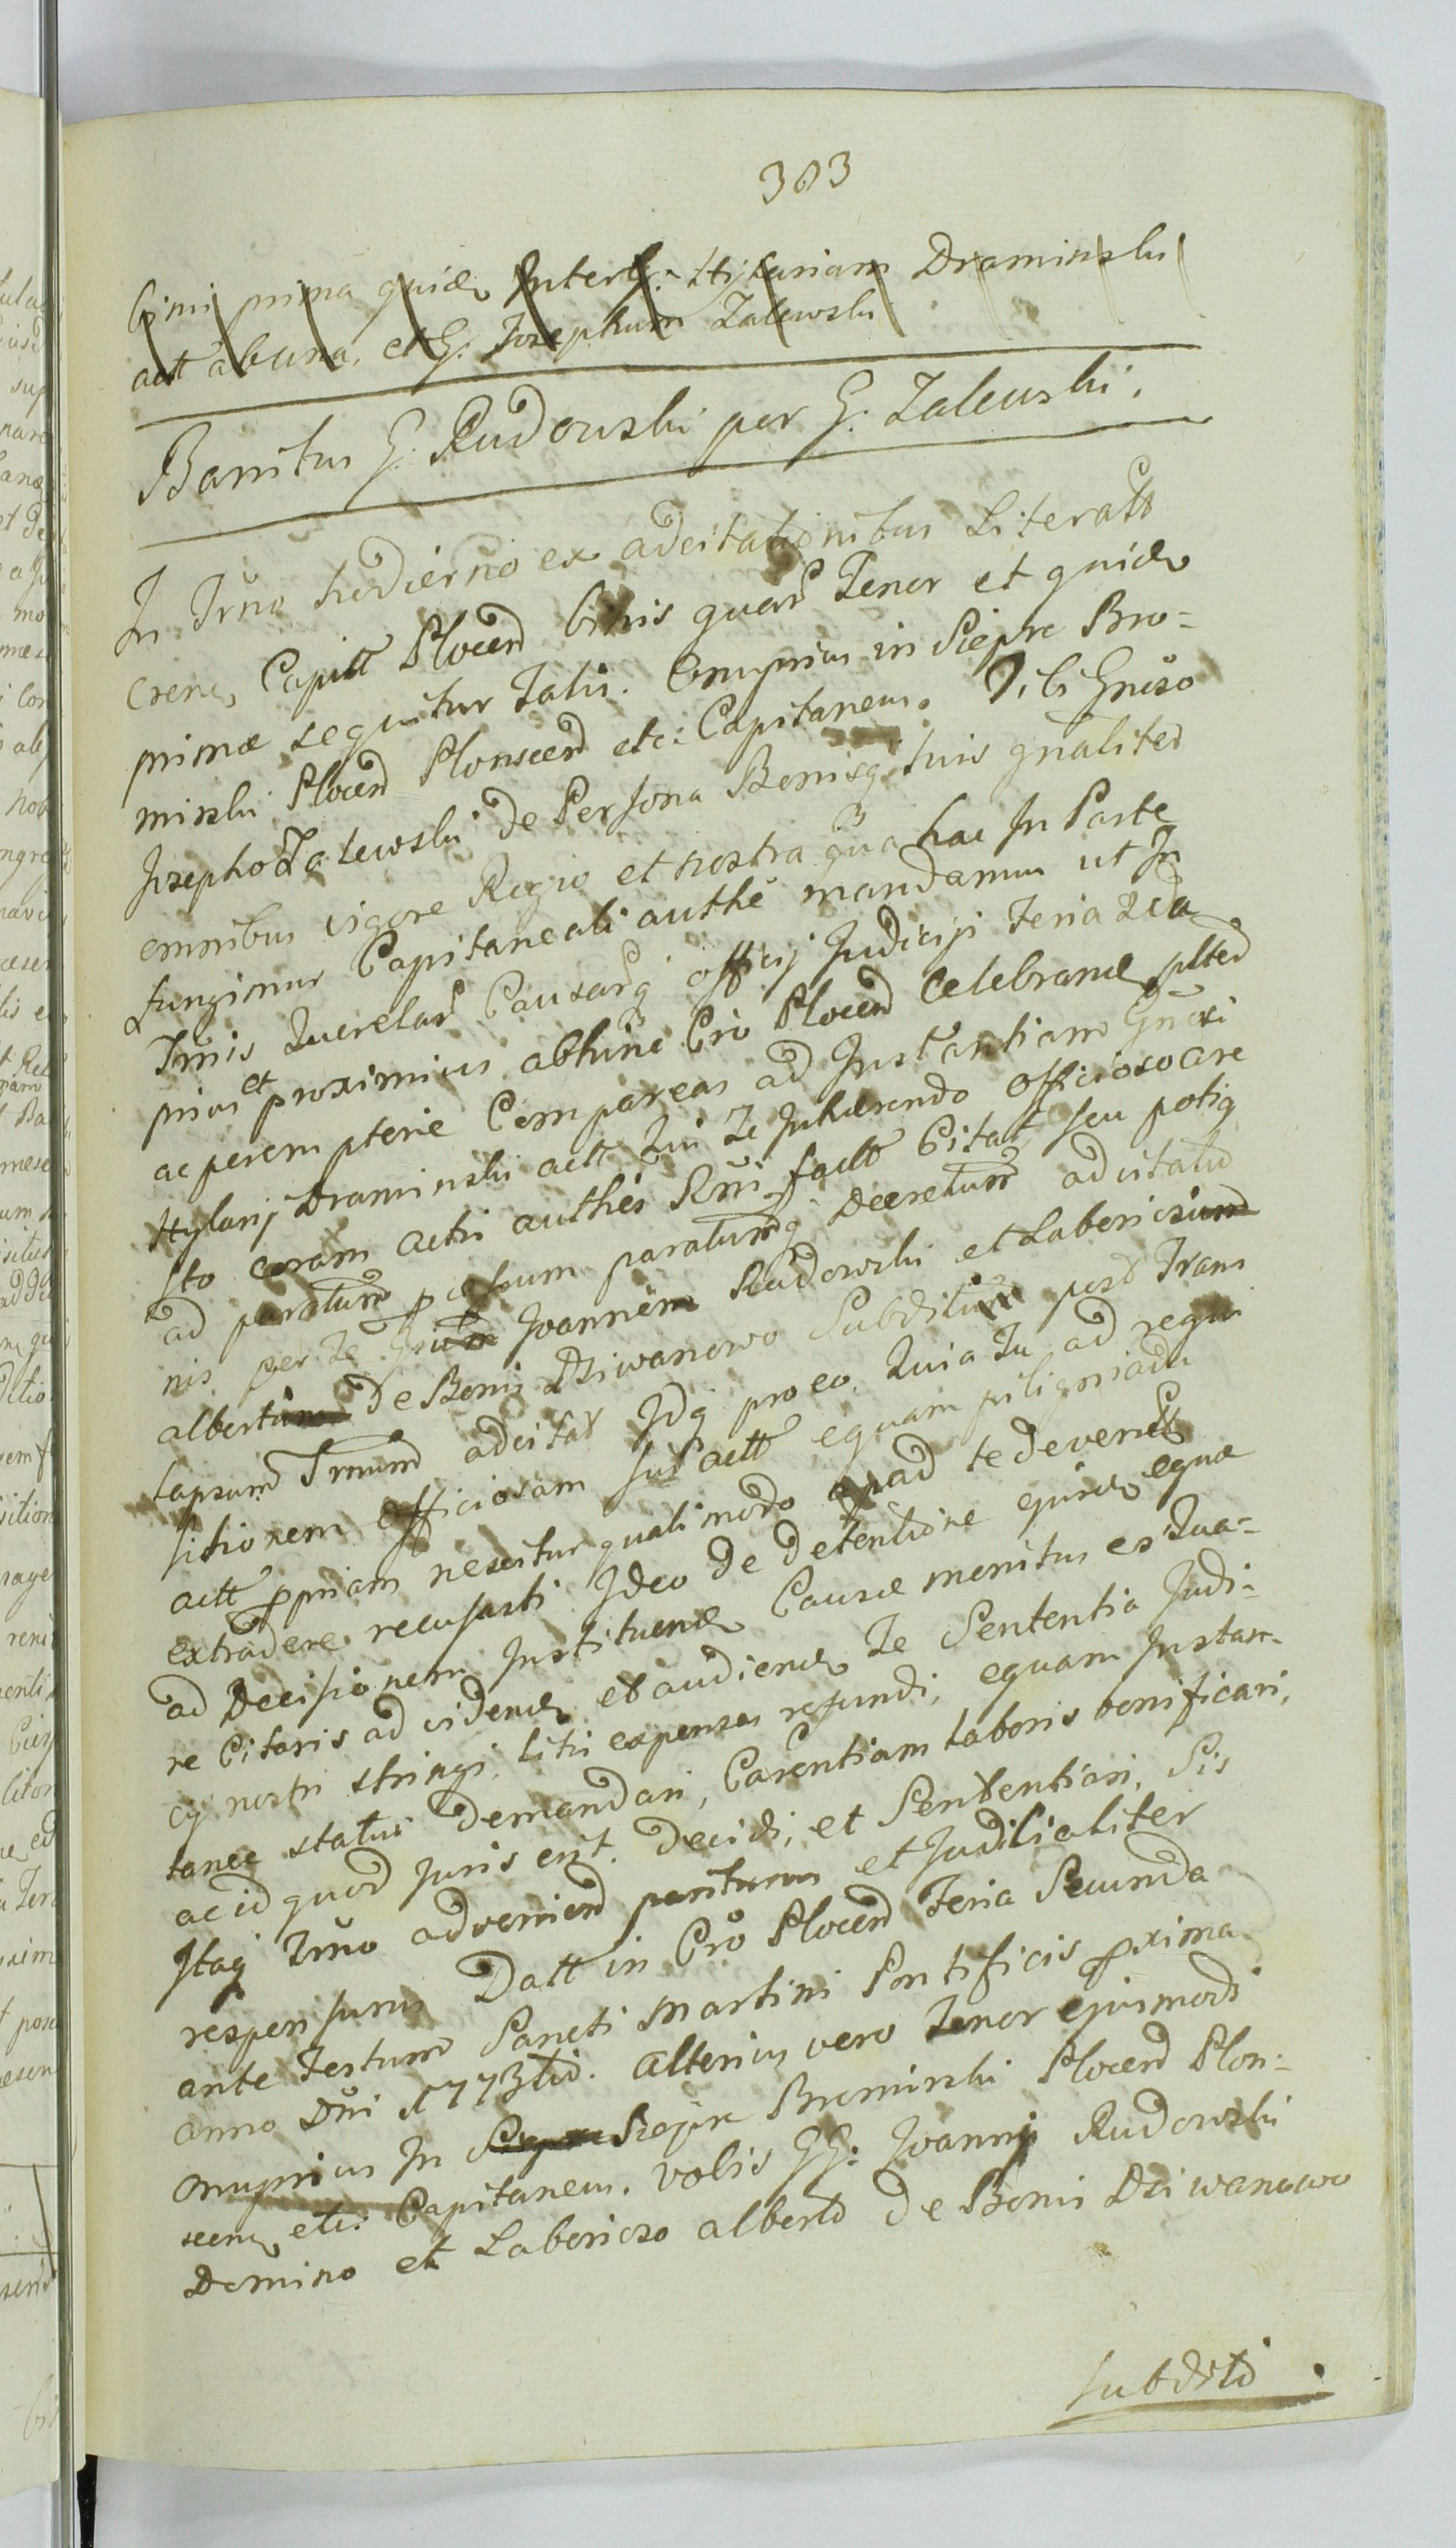 303
bimi prima quidē Inter G. Hylarium Draminski
actt ab una, et G. Josephum Zalewski
Banitus G. Rudowski per G. Zalewski.
In Trno hodierno ex adcitationibus Literatt
Capitt Plocen binis quarū Tenor et quidē
primæ sequitur talis. Onuprius in Sieprc Bro-
minski Plocen Plonscen etc: Capitaneus. Tibi Gnoso
Josepho Zalewski de Persona Bonisq tuis gnaliter
omnibus vigore Regio et nostra qua hac In Parte
fungimur Capitaneali authē mandamus ut In
Trnis Querelarū Causarūq officij Judicijs feria 2da
prius et proximius abhinc Cio Plocen Celebranđ pltđ
ac peremptorie Compareas ad Instantiam Gnosi
Hylarij Draminski actt Qui Te Inhærendo officioso are
sto coram actis authēs Rni factt Citat seu potiq
ad paratum pcessum paratumq Decretum adcitatio
nis per Te Joannem Rudowski et Laboriosum
albertum de Bonis Dziwanowo Subditum post Trans
lapsum Trnum adcitat Idq pro eo. Quia Tu ad requi
sitionem officiosam sui actt equam piligniadu
actt ppriam nescitur quali modo apud te devenit
extradere recusasti Ideo de detentione ejusdē equæ
ad Decisionem Instituenđ Causæ monitus es Qua-
re Citaris ad videnđ et audienđ Te Sententia Judi-
cij nostri stringi, litis expensas refundi, equam Instan-
taneæ statui demandari, Carentiam laboris bonificari,
ac id quod Juris erit. Decidi, et Sententiari, Sis
Itaq Trno advenien pariturus et Judilialiter
responsurus Datt in Cio Plocen Feria Secunda
ante Festum Sancti Martini Pontificis pxima
anno Dni 1773tio. Alterius vero Tenor ejusmodi
Onuprius In Siepre Brominski Plocen Plon-
scenđ etc: Capitaneus. Vobis GG: Joanni Rudowski
Domino et Laborioso alberto de Bonis Dziwanowo
Subdito